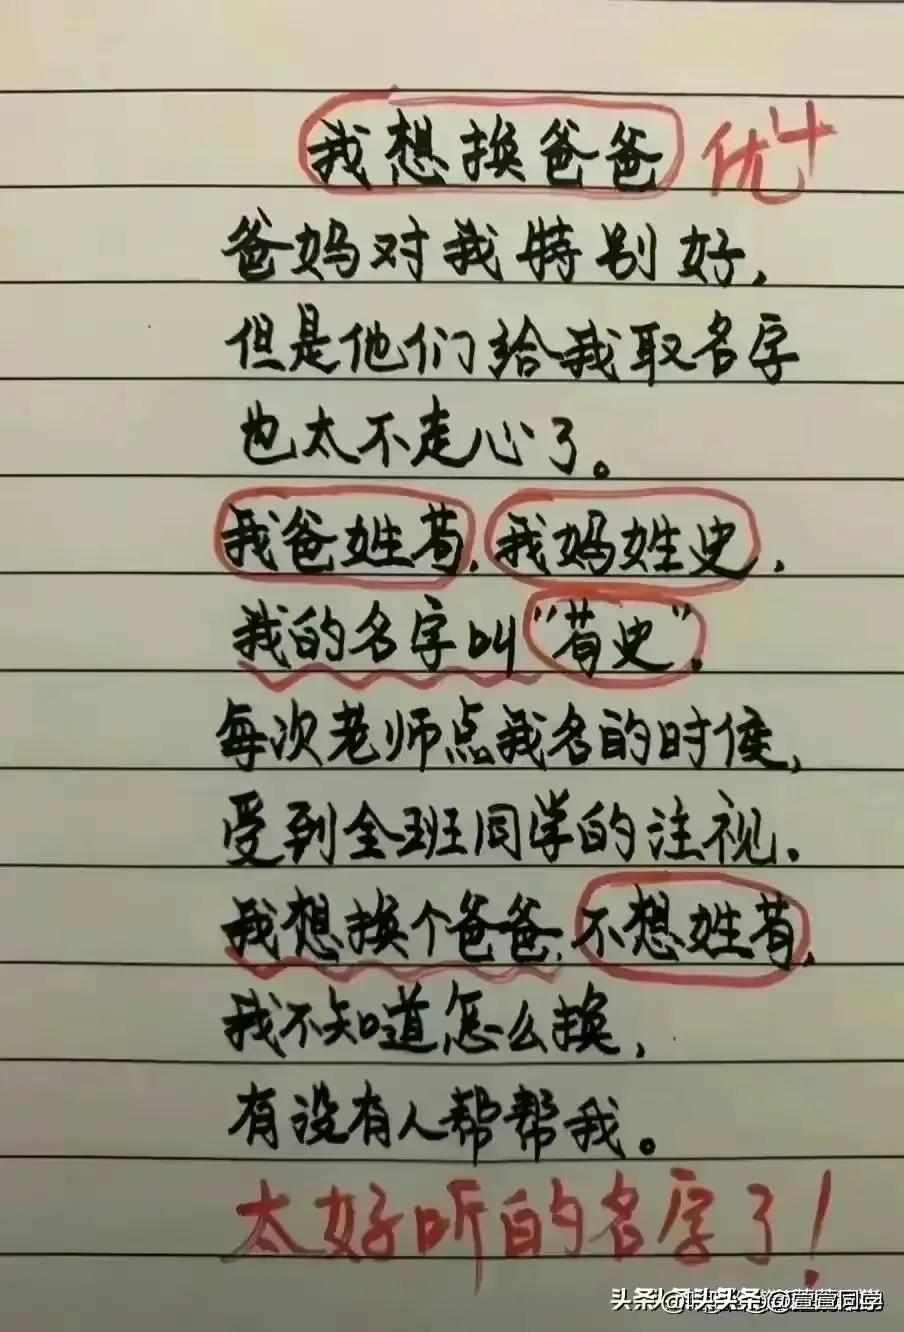 我想换爸爸 优+
爸妈对我特别好，
但是他们给我取名字
也太不走心了。
我爸姓苟，我妈姓史，
我的名字叫“苟史”，
每次老师点我名的时候，
受到全班同学的注视，
我想换个爸爸，不想姓苟，
我不知道怎么换，
有没有人帮帮我。
太好听的名字了！